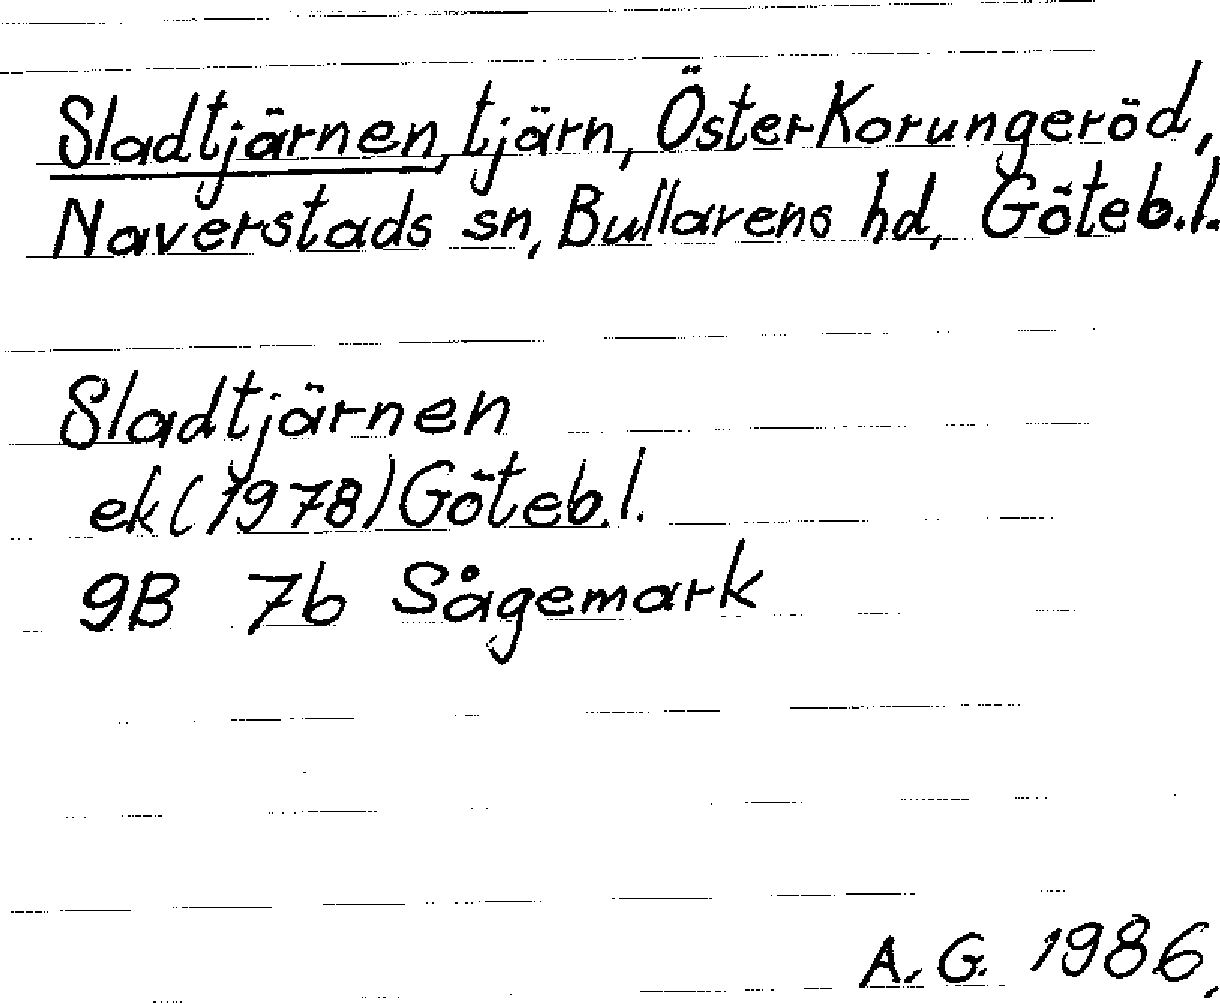 Sladtjärnen, tjärn, Öster Korungeröd,
Naverstads sn, Bullarens hd, Göteb.l.
Sladtjärnen
ek (1978) Göteb.l.
9B 7b Sågemark
A. G. 1986.